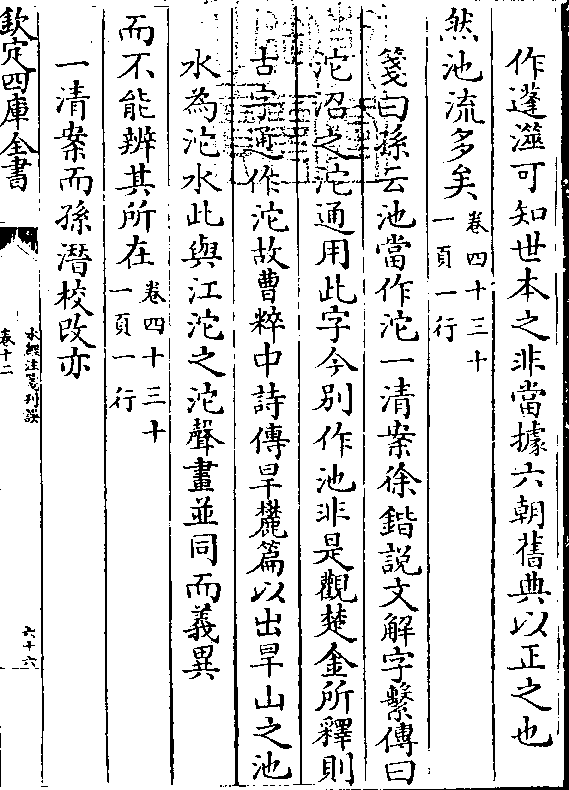 作蓬澨可知世本之非當據六朝舊典以正之也
然池流多矣卷四十三十一頁一行
箋曰孫云池當作沱一清案徐鍇説文解字繫傳曰
沱沼之沱通用此字今別作池非是觀楚金所釋則
古字通作沱故曹粹中詩傳旱麓篇以出旱山之池
水為沱水此與江沱之沱聲畫並同而義異
而不能辨其所在卷四十三十一頁一行
一清案而孫潛校改亦
欽定四庫全書
水經注箋刊誤
卷十二
六十六